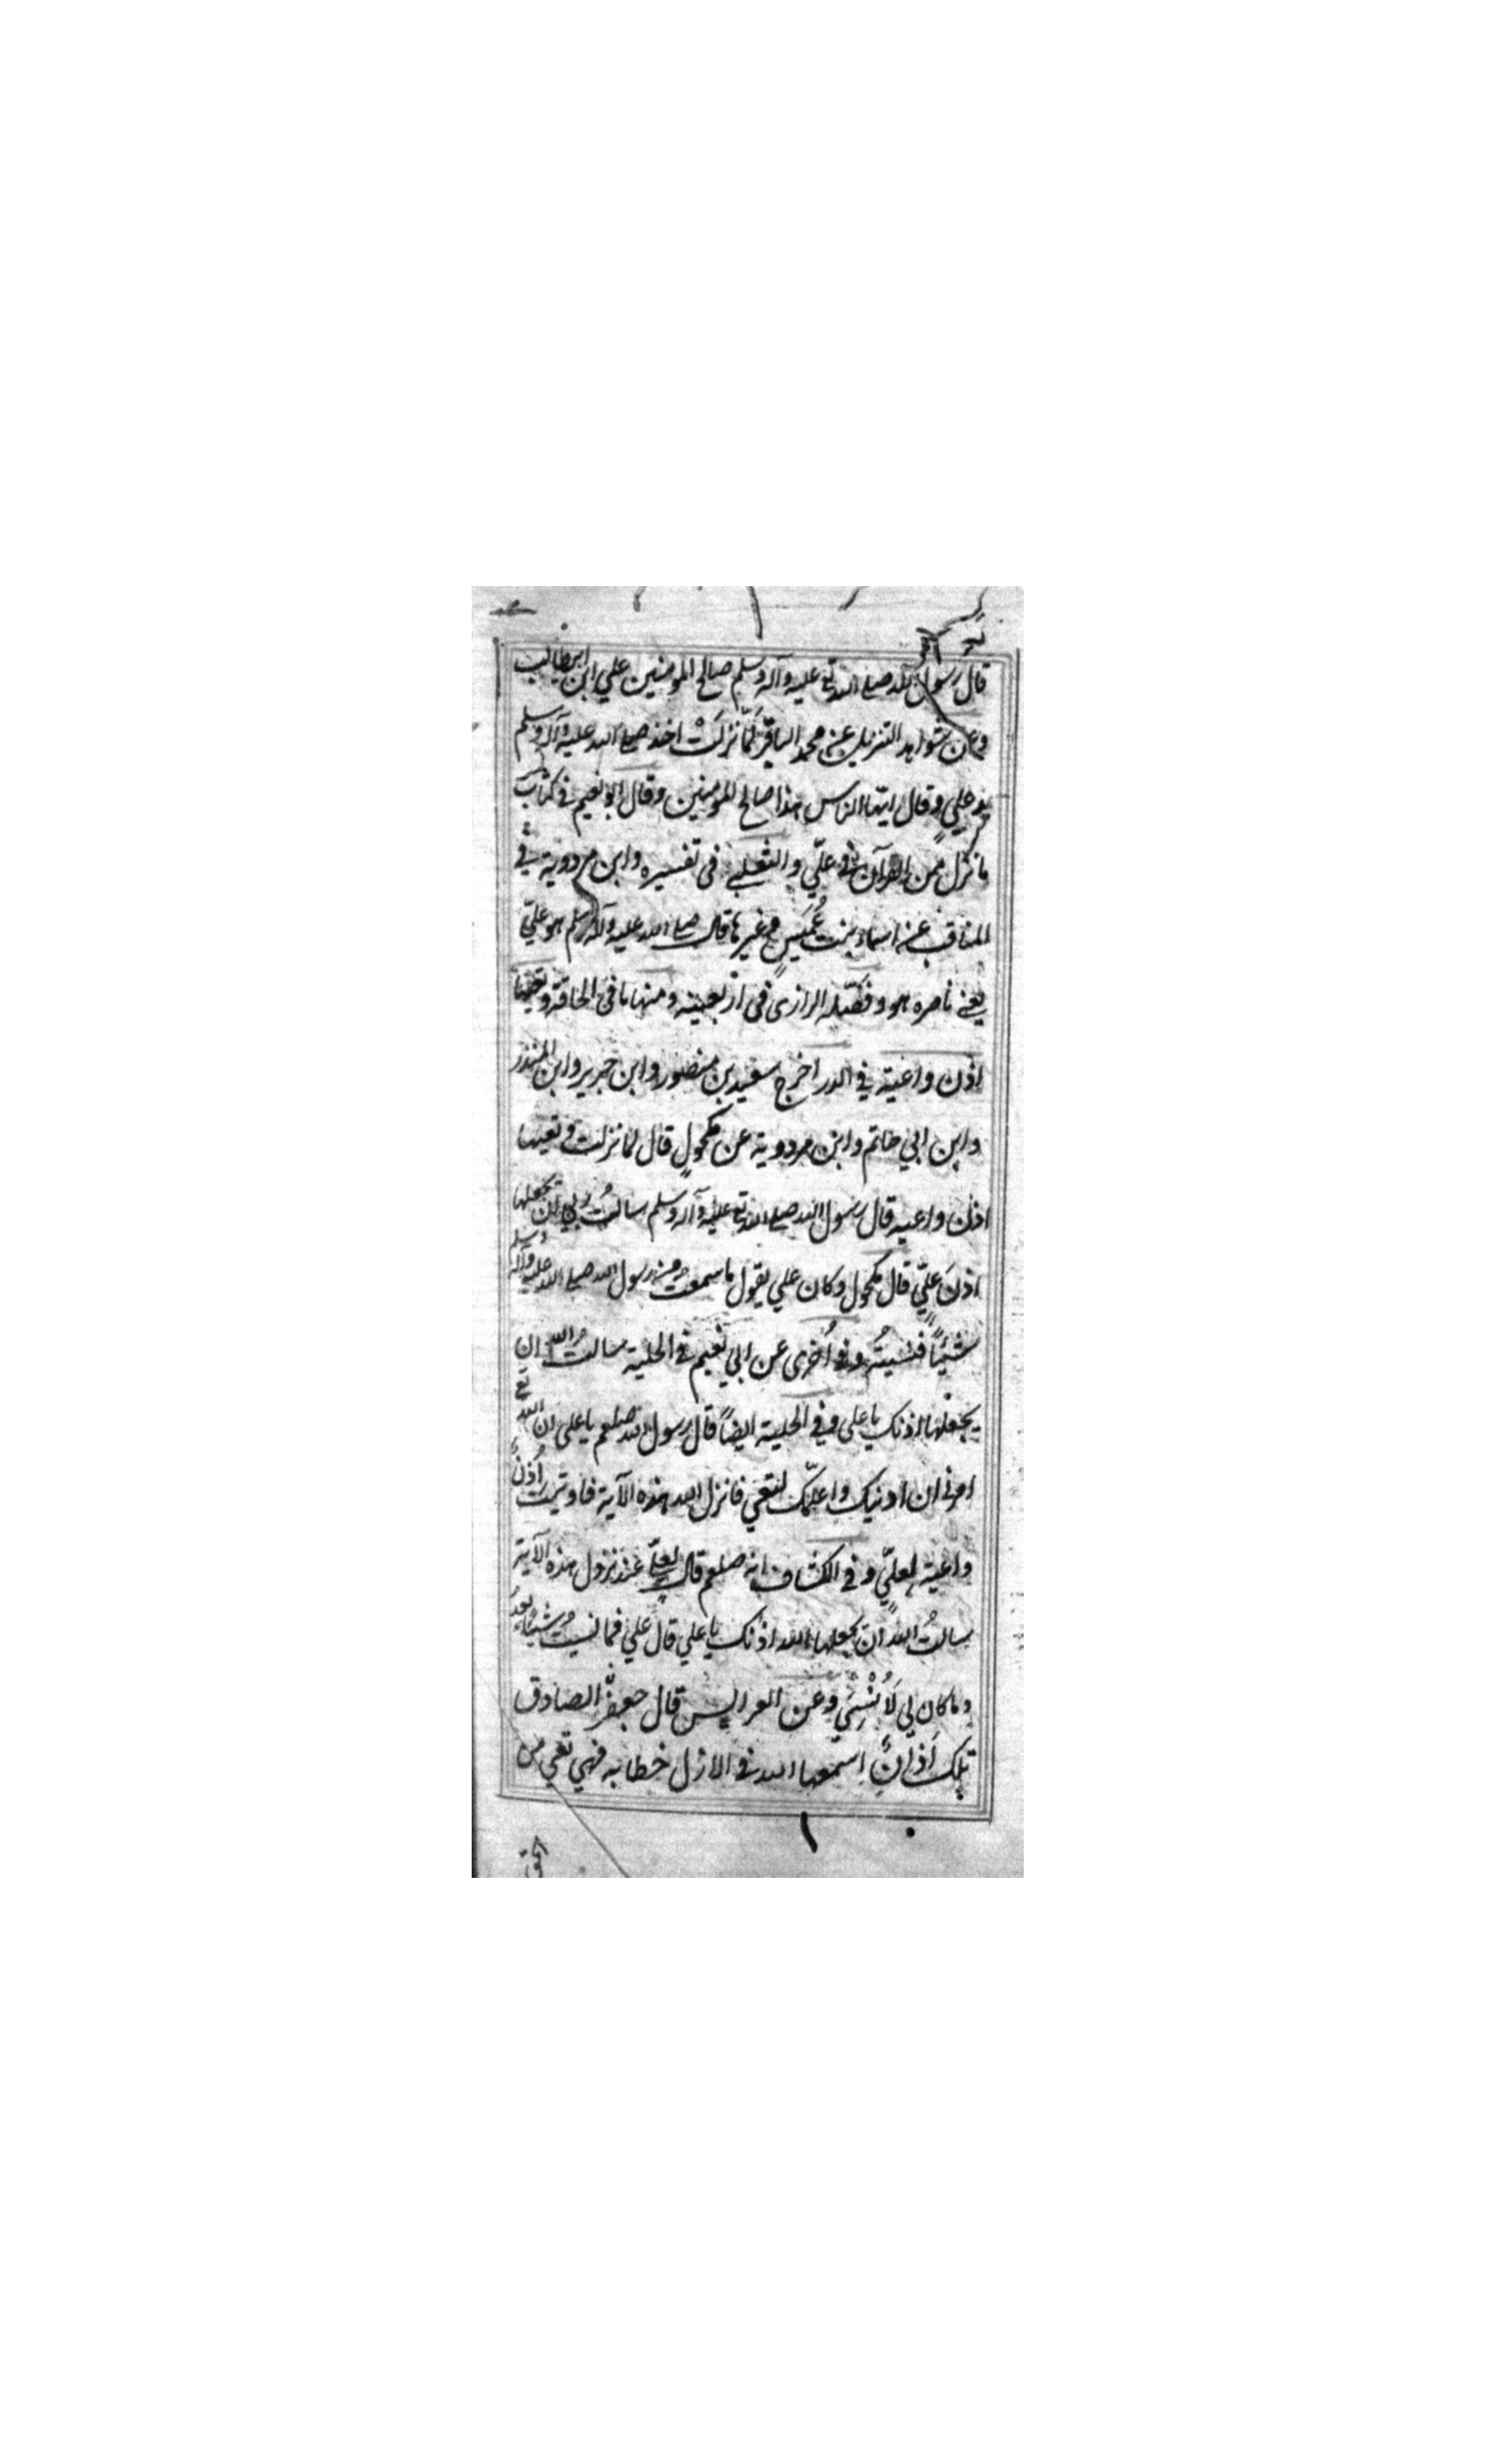 قال رسول الله صلى الله تع عليه وآله وسلم صالح المومنين علي ابن ابيطالب
وعن شواهد التنزيل عن محمد الباقر لمّا نزلَتْ اخذ صلى الله عليه وآله وسلم
يد عليٍ وقال ايّها الناس هذا صالح المومنين وقال ابو نعيم في كتاب
ما نزل من القرآن في عليّ والثعلبي في تفسيره وابن مردوية في
المناقب عن اسماء بنت عُمَيسٍ وغيرها قال صلى الله عليه وآله وسلم هو عليّ
يعني ناصره هو وفصّله الرازي في اربعينه ومنها ما في الحاقة وتعيها
اذن واعية في الدر اخرج سعيد بن منصور وابن جرير وابن المنذر
وابن ابي حاتم وابن مردوية عن مكحولٍ قال لما نزلت وتعيها
اذن واعيه قال رسول الله صلى الله تع عليه وآله وسلم سالتُ ربي ان يجعلها
اذنَ عليّ قال مكحول وكان علي يقول ما سمعتُ من رسول الله صلى الله عليه وآله وسلم
شيئاً فنسيتُه وفي اُخرى عن ابي نعيم في الحلية سالتُ الله ان
يجعلها اذنك يا علي وفي الحلية ايضاً قال رسول الله صلعم يا علي ان الله تع
امرني ان ادنيك واعلّمك لتعي فانزل الله هذه الآية فاوتيت اُذنٌ
واعية لعليّ وفي الكشاف انه صلعم قال لعليّ عند نزول هذه الآية
سالتُ الله ان يجعلها الله اذنك يا علي قال علي فما نسيتُ شيئاً بعدُ
وما كان لي لَا نُنْسِيَ وعن العرايس قال جعفر الصادق
تلك اَذانٌ اسمعها الله في الازل خطابه فهي تعي من